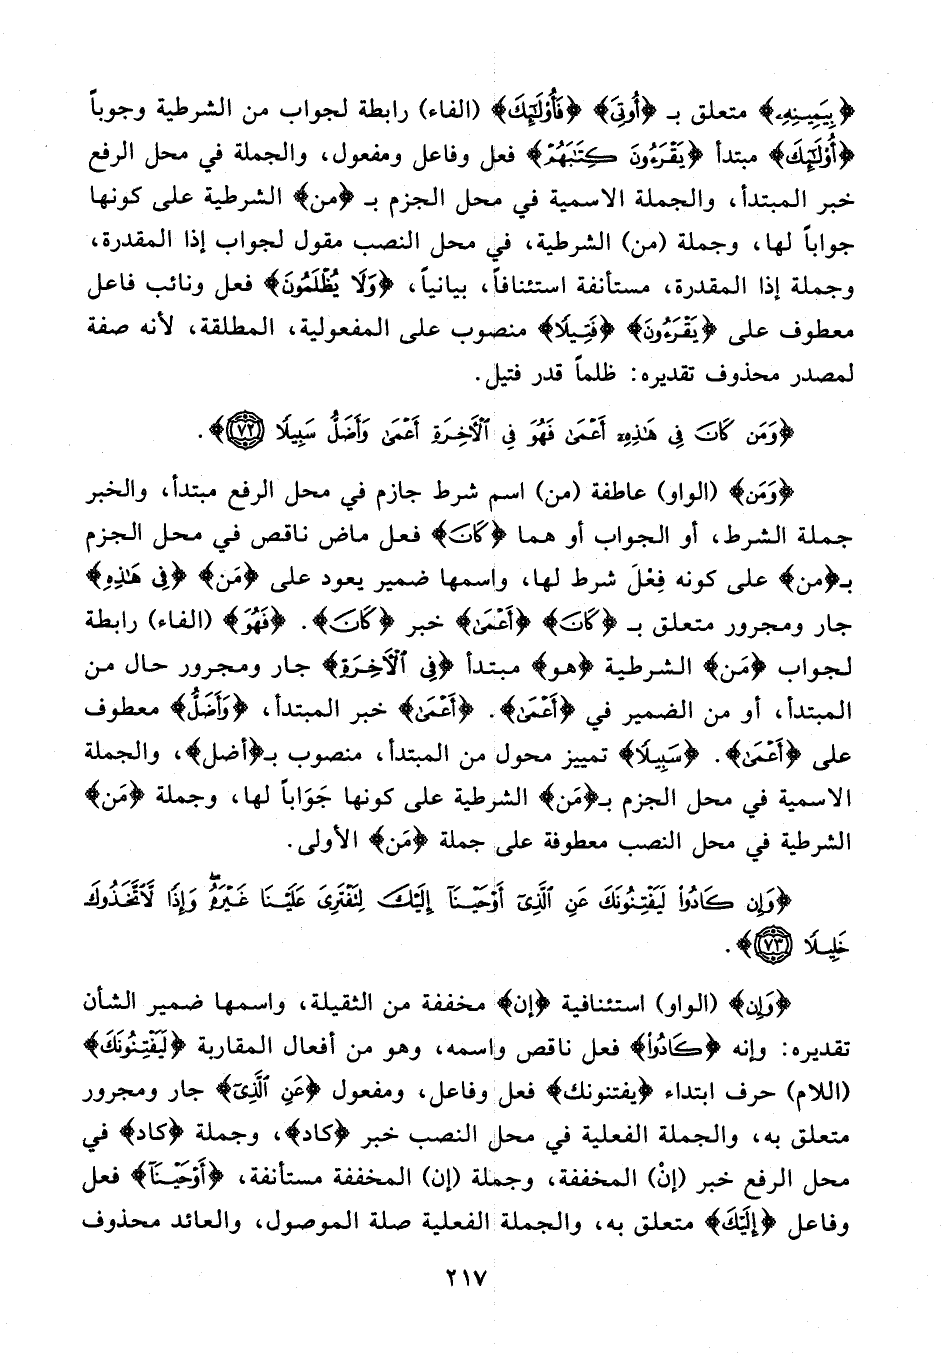 ﴿بِيَمِينِهِۦ﴾ متعلق بـ ﴿أُوتِىَ﴾ ﴿فَأُوْلَٰٓئِكَ﴾ (الفاء) رابطة لجواب من الشرطية وجوباً
﴿أُوْلَٰٓئِكَ﴾ مبتدأ ﴿يَقْرَءُونَ كِتَٰبَهُمْ﴾ فعل وفاعل ومفعول، والجملة في محل الرفع
خبر المبتدأ، والجملة الاسمية في محل الجزم بـ ﴿من﴾ الشرطية على كونها
جواباً لها، وجملة (من) الشرطية، في محل النصب مقول لجواب إذا المقدرة،
وجملة إذا المقدرة، مستأنفة استئنافاً، بيانياً، ﴿وَلَا يُظْلَمُونَ﴾ فعل ونائب فاعل
معطوف على ﴿يَقْرَءُونَ﴾ ﴿فَتِيلًا﴾ منصوب على المفعولية، المطلقة، لأنه صفة
لمصدر محذوف تقديره: ظلماً قدر فتيل.
﴿وَمَن كَانَ فِى هَٰذِهِۦٓ أَعْمَىٰ فَهُوَ فِى ٱلْأَخِرَةِ أَعْمَىٰ وَأَضَلُّ سَبِيلًا ٧٢﴾.
﴿وَمَن﴾ (الواو) عاطفة (من) اسم شرط جازم في محل الرفع مبتدأ، والخبر
جملة الشرط، أو الجواب أو هما ﴿كَانَ﴾ فعل ماض ناقص في محل الجزم
بـ﴿من﴾ على كونه فِعْلَ شرط لها، واسمها ضمير يعود على ﴿مَن﴾ ﴿فِى هَٰذِهِۦٓ﴾
جار ومجرور متعلق بـ ﴿كَانَ﴾ ﴿أَعْمَىٰ﴾ خبر ﴿كَانَ﴾. ﴿فَهُوَ﴾ (الفاء) رابطة
لجواب ﴿مَن﴾ الشرطية ﴿هو﴾ مبتدأ ﴿فِى ٱلْأَخِرَةِ﴾ جار ومجرور حال من
المبتدأ، أو من الضمير في ﴿أَعْمَىٰ﴾. ﴿أَعْمَىٰ﴾ خبر المبتدأ، ﴿وَأَضَلُّ﴾ معطوف
على ﴿أَعْمَىٰ﴾. ﴿سَبِيلًا﴾ تمييز محول من المبتدأ، منصوب بـ﴿أضل﴾، والجملة
الاسمية في محل الجزم بـ﴿مَن﴾ الشرطية على كونها جَوَاباً لها، وجملة ﴿مَن﴾
الشرطية في محل النصب معطوفة على جملة ﴿مَن﴾ الأولى.
﴿وَإِن كَادُواْ لَيَفْتِنُونَكَ عَنِ ٱلَّذِىٓ أَوْحَيْنَآ إِلَيْكَ لِتَفْتَرِىَ عَلَيْنَا غَيْرَهُۥ وَإِذًا لَّٱتَّخَذُوكَ
خَلِيلًا ٧٣﴾.
﴿وَإِن﴾ (الواو) استئنافية ﴿إن﴾ مخففة من الثقيلة، واسمها ضمير الشأن
تقديره: وإنه ﴿كَادُواْ﴾ فعل ناقص واسمه، وهو من أفعال المقاربة ﴿لَيَفْتِنُونَكَ﴾
(اللام) حرف ابتداء ﴿يفتنونك﴾ فعل وفاعل، ومفعول ﴿عَنِ ٱلَّذِىٓ﴾ جار ومجرور
متعلق به، والجملة الفعلية في محل النصب خبر ﴿كاد﴾، وجملة ﴿كاد﴾ في
محل الرفع خبر (إنْ) المخففة، وجملة (إن) المخففة مستأنفة، ﴿أَوْحَيْنَآ﴾ فعل
وفاعل ﴿إِلَيْكَ﴾ متعلق به، والجملة الفعلية صلة الموصول، والعائد محذوف
٢١٧